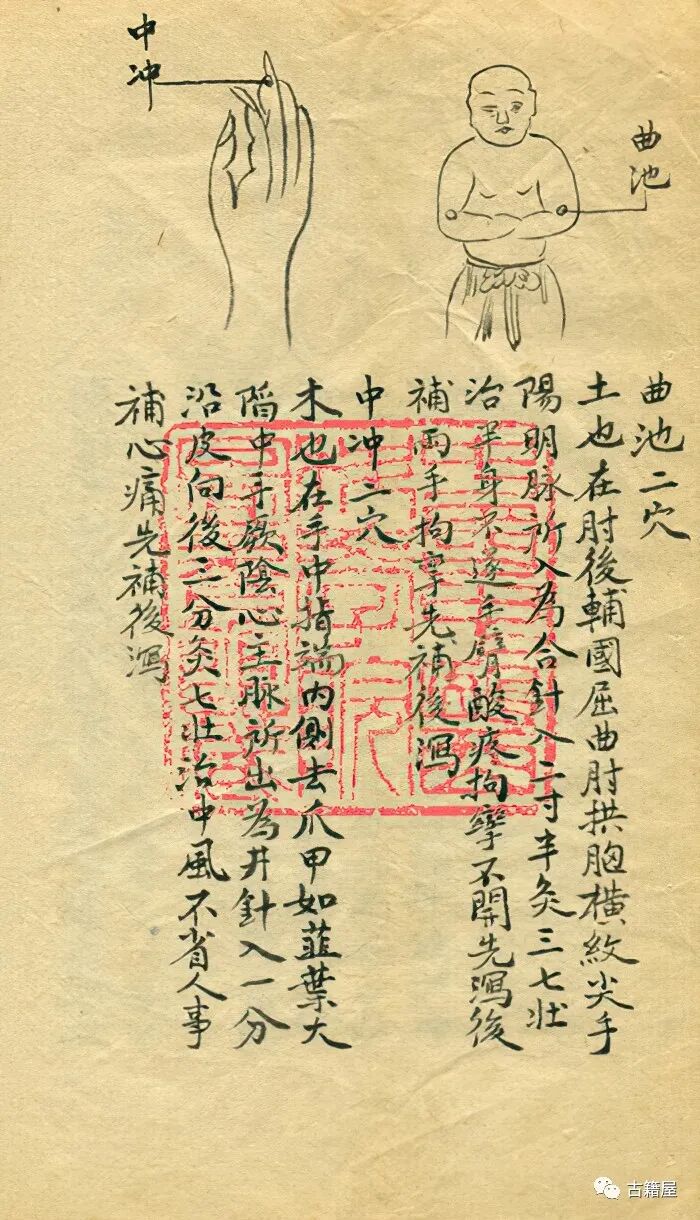 曲池
中冲
曲池二穴
土也在肘後輔國屈曲肘拱胸橫紋尖手
陽明脉所入為合針入二寸半灸三七壯
治半身不遂手臂酸疼拘攣不開先瀉後
補両手拘攣先補後瀉
中冲二穴
木也在手中指端内側去爪甲如韮葉大
陷中手厥陰心主脉所出為井針入一分
沿皮向後三分灸七壯治中風不省人事
補心痛先補後瀉
古籍屋